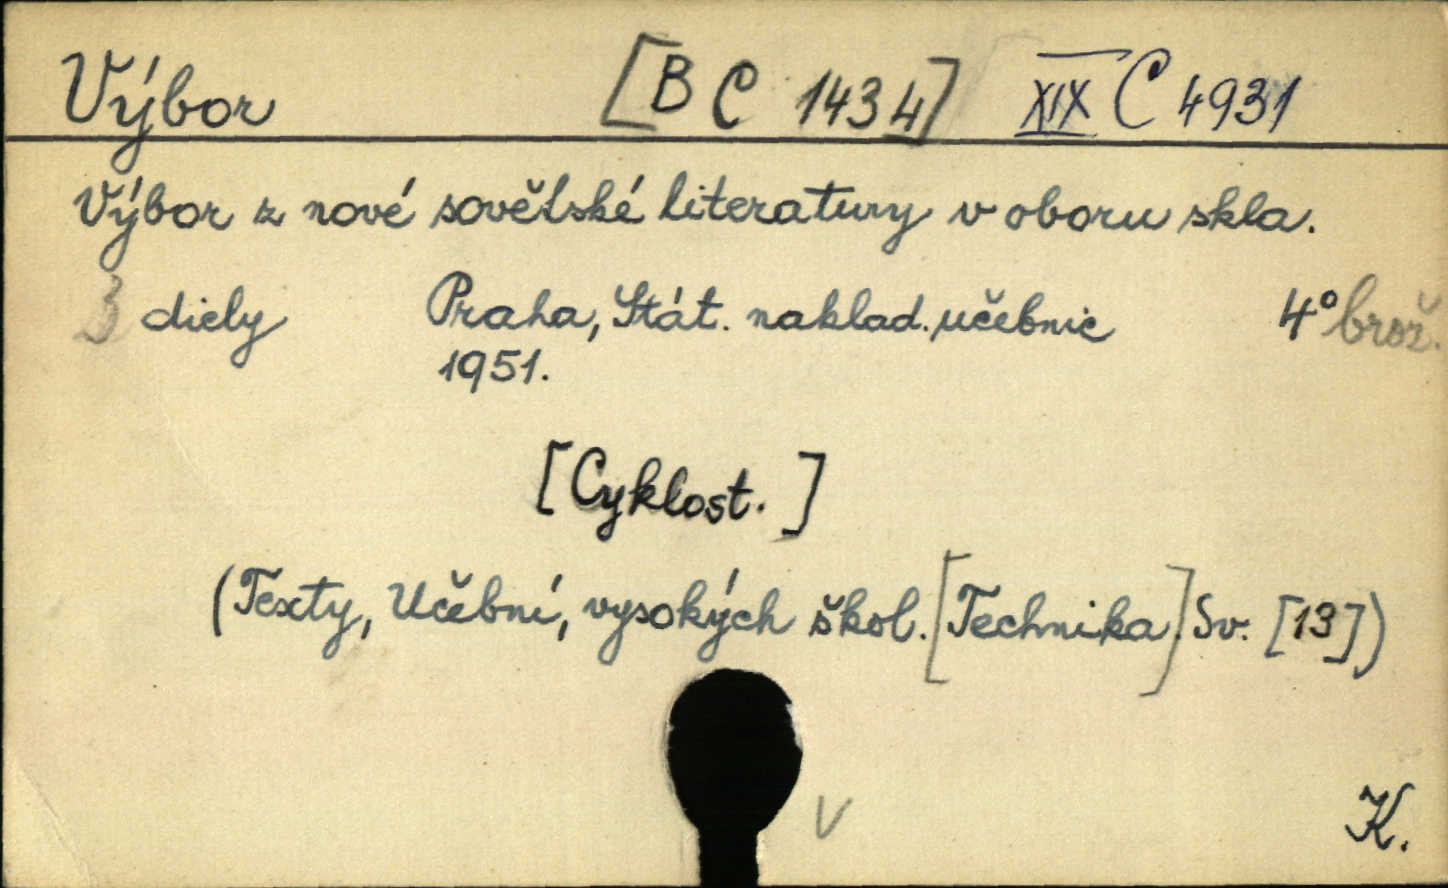 Výbor [B C 1434] XIX C 4931
Výbor z nové sovětské literatury v oboru skla.
3 diely Praha, Stát. naklad. učebnic 4° brož.
1951.
[Cyklost.]
(Texty, Učební, vysokých škol. [Technika]. Sv. [13])
V
K.